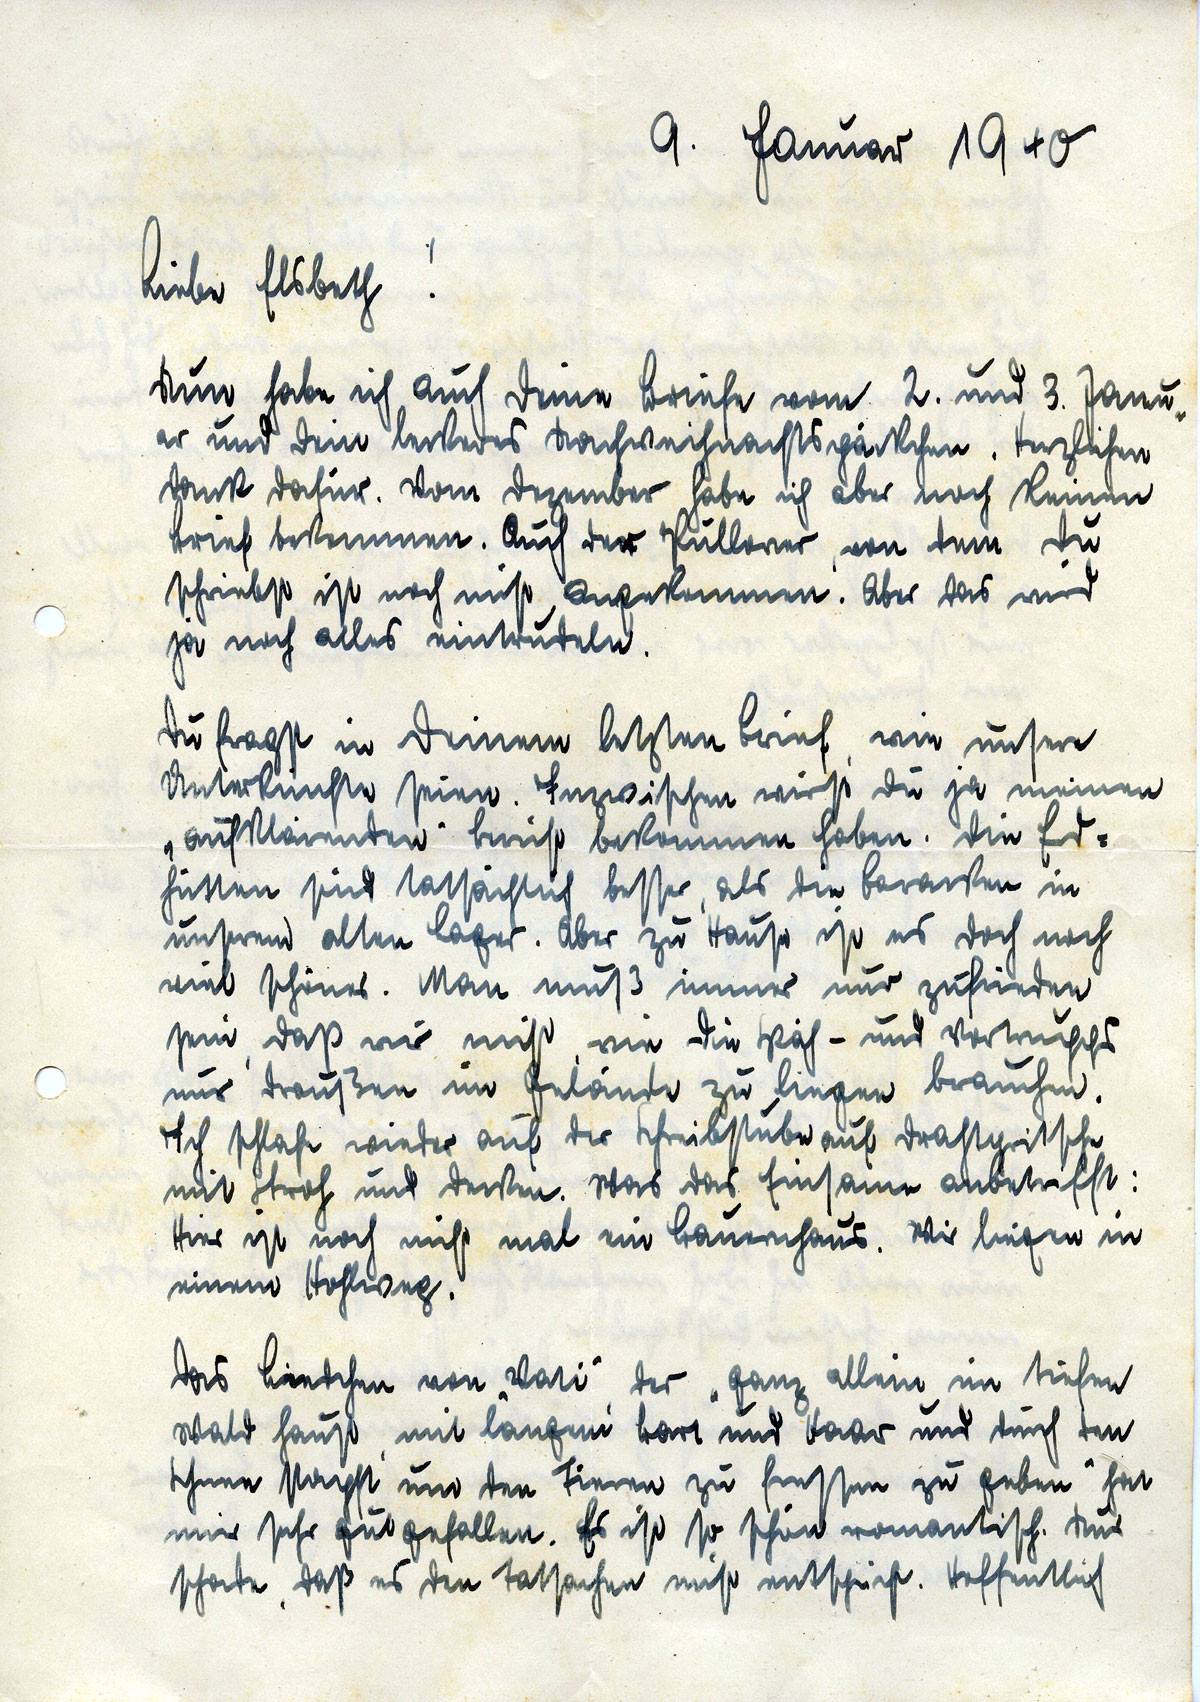 9. Januar 1940
Liebe Elsbeth!
Nun habe ich auch Deine Briefe vom 2. und 3. Janu-
ar und Dein leckeres Nachweihnachtspäckchen. Herzlichen
Dank dafür. Vom Dezember habe ich aber noch keinen
Brief bekommen. Auch der Pullover, von dem Du
schriebst ist noch nicht angekommen. Aber das wird
ja noch alles eintrudeln.
Du fragst in Deinem letzten Brief, wie unsere
Unterkünfte seien. Inzwischen wirst Du ja meinen
„aufklärenden" Bericht bekommen haben. Die Erd-
hütten sind tatsächlich besser, als die Baracken in
unserem alten Lager. Aber zu Hause ist es doch noch
viel schöner. Man muß immer nur zufrieden
sein, daß wir nicht, wie die Späh- und Vortrupps
nur draußen im Gelände zu liegen brauchen.
Ich schlafe wieder auf der Schreibstube auf Drahtpritsche
mit Stroh und Decken. Was das Einsame anbetrifft:
Hier ist noch nicht mal ein Bauernhaus. Wir liegen in
einem Hohlweg.
Das Liedchen von „Vati" der „ganz allein im tiefen
Wald haust, mit langem Bart und Haar und durch den
Schnee stapft um den Tieren zu fressen zu geben" hat
mir sehr gut gefallen. Es ist so schön romantisch. Nur
schade, daß es den Tatsachen nicht entspricht. Hoffentlich